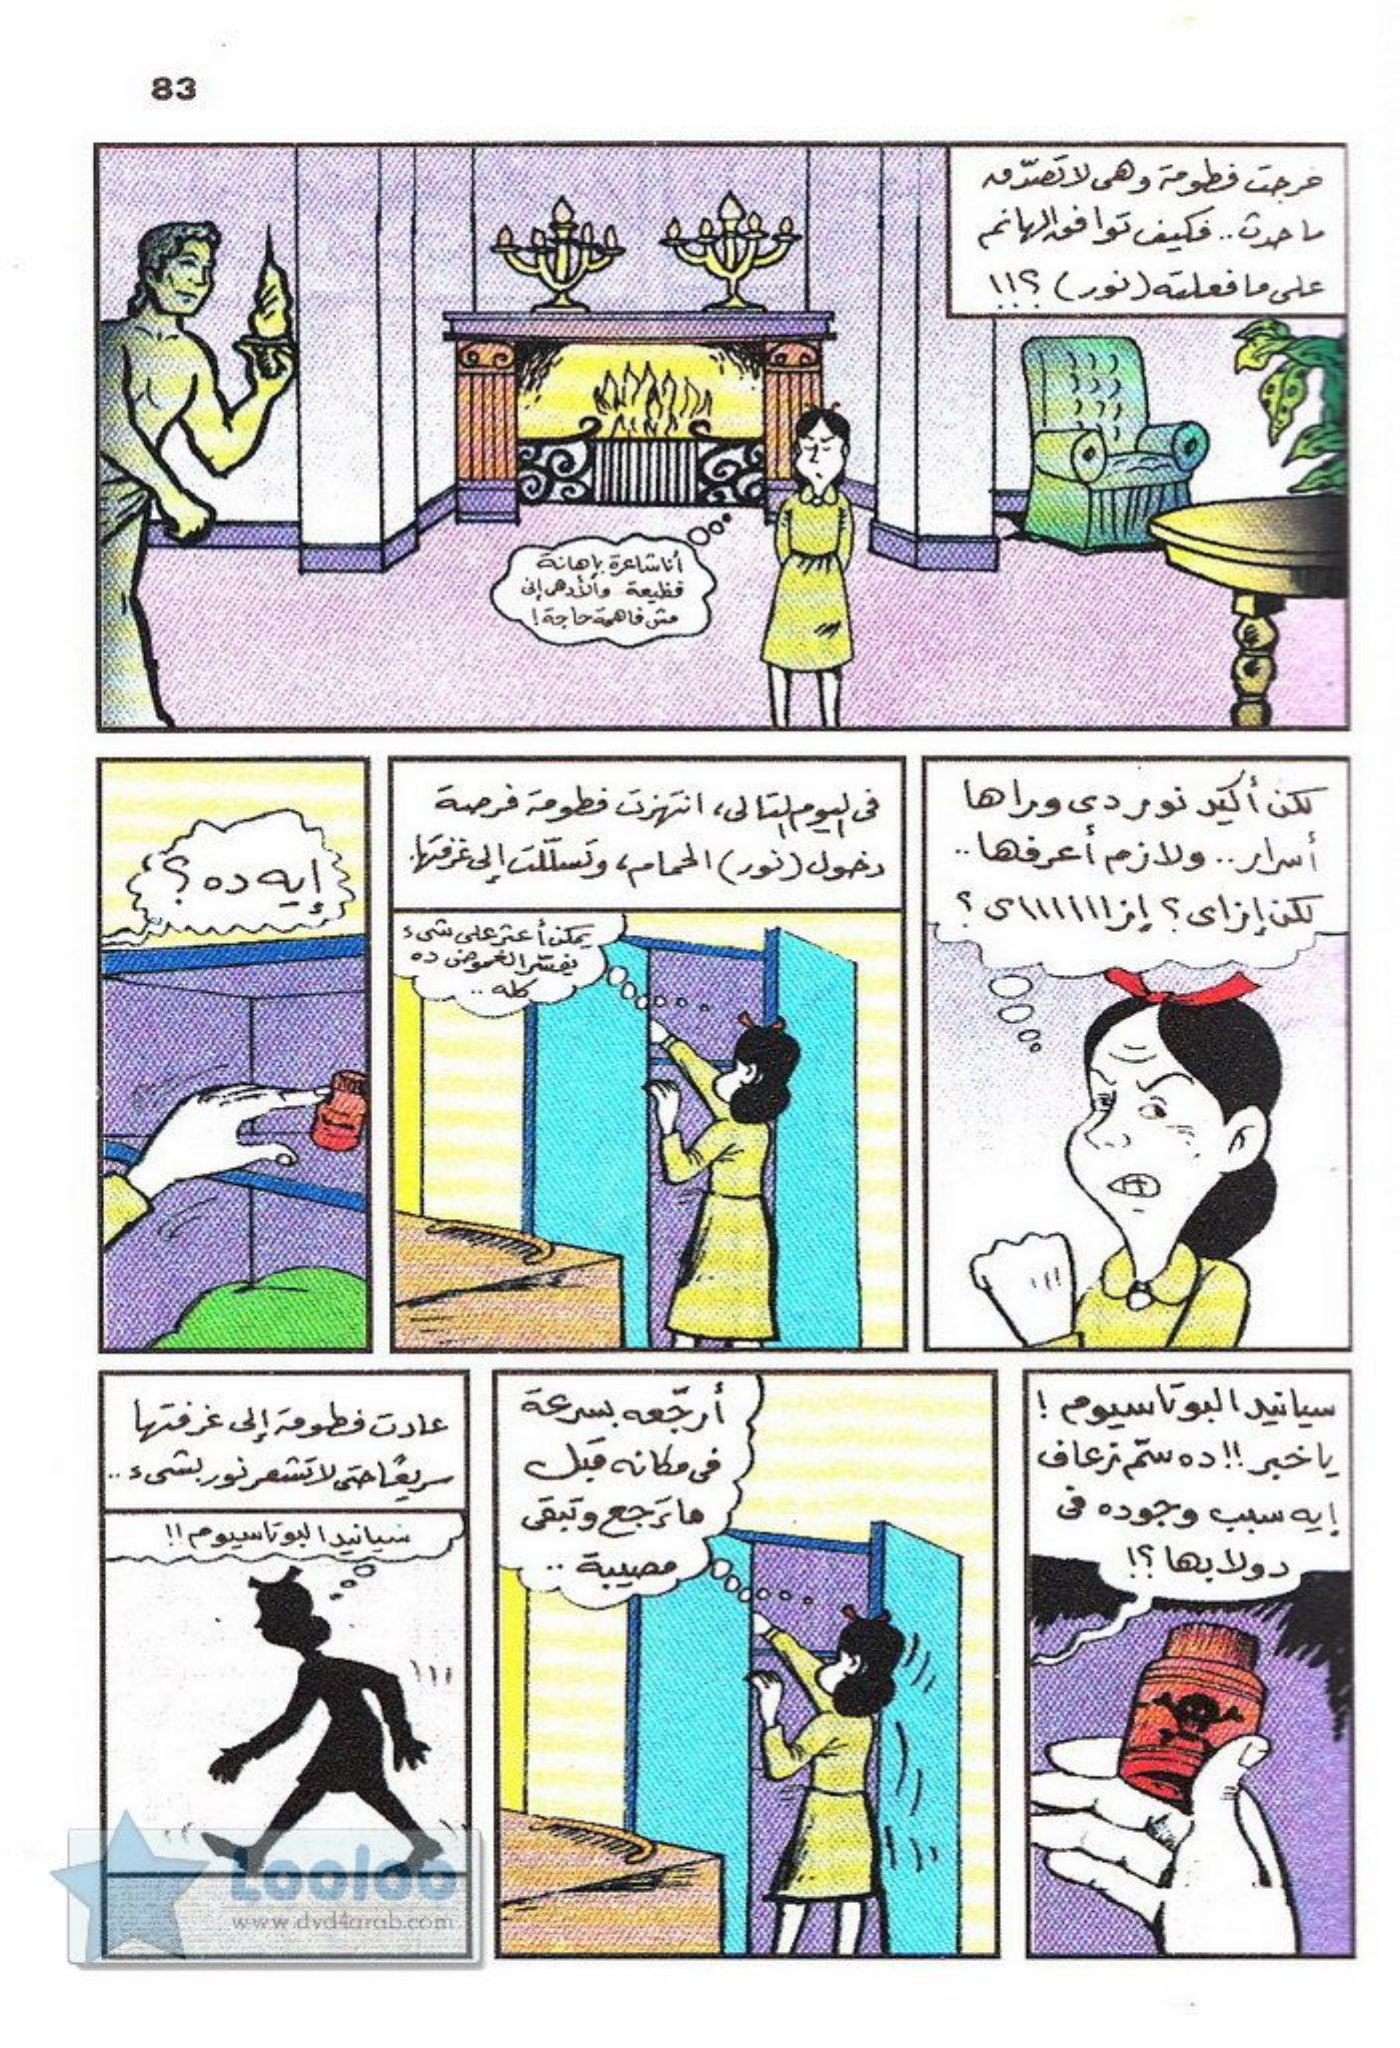 83
خرجت فطومة وهى لا تصدّق
ما حدث.. فكيف توافق الهانم
على ما فعلته (نور) ؟!!
أنا شاعرة بإهانة
فظيعة والأدهى إنى
مش فاهمة حاجة!
لكن أكيد نور دى وراها
أسرار.. ولازم أعرفها..
لكن إزاى؟ إزااااااااى؟
فى اليوم التالى، انتهزت فطومة فرصة
دخول (نور) الحمام، وتسلّلت إلى غرفتها.
يمكن أعثر على شىء
يفسّر الغموض ده
كله ..
إيه ده؟
سيانيد البوتاسيوم!
يا خبر!! ده سمّ زعاف
إيه سبب وجوده فى
دولابها؟!
أرجّعه بسرعة
فى مكانه قبل
ما ترجع وتبقى
مصيبة ..
عادت فطومة إلى غرفتها
سريعًا حتى لا تشعر نور بشىء..
سيانيد البوتاسيوم!!
Looloo
www.dvd4arab.com